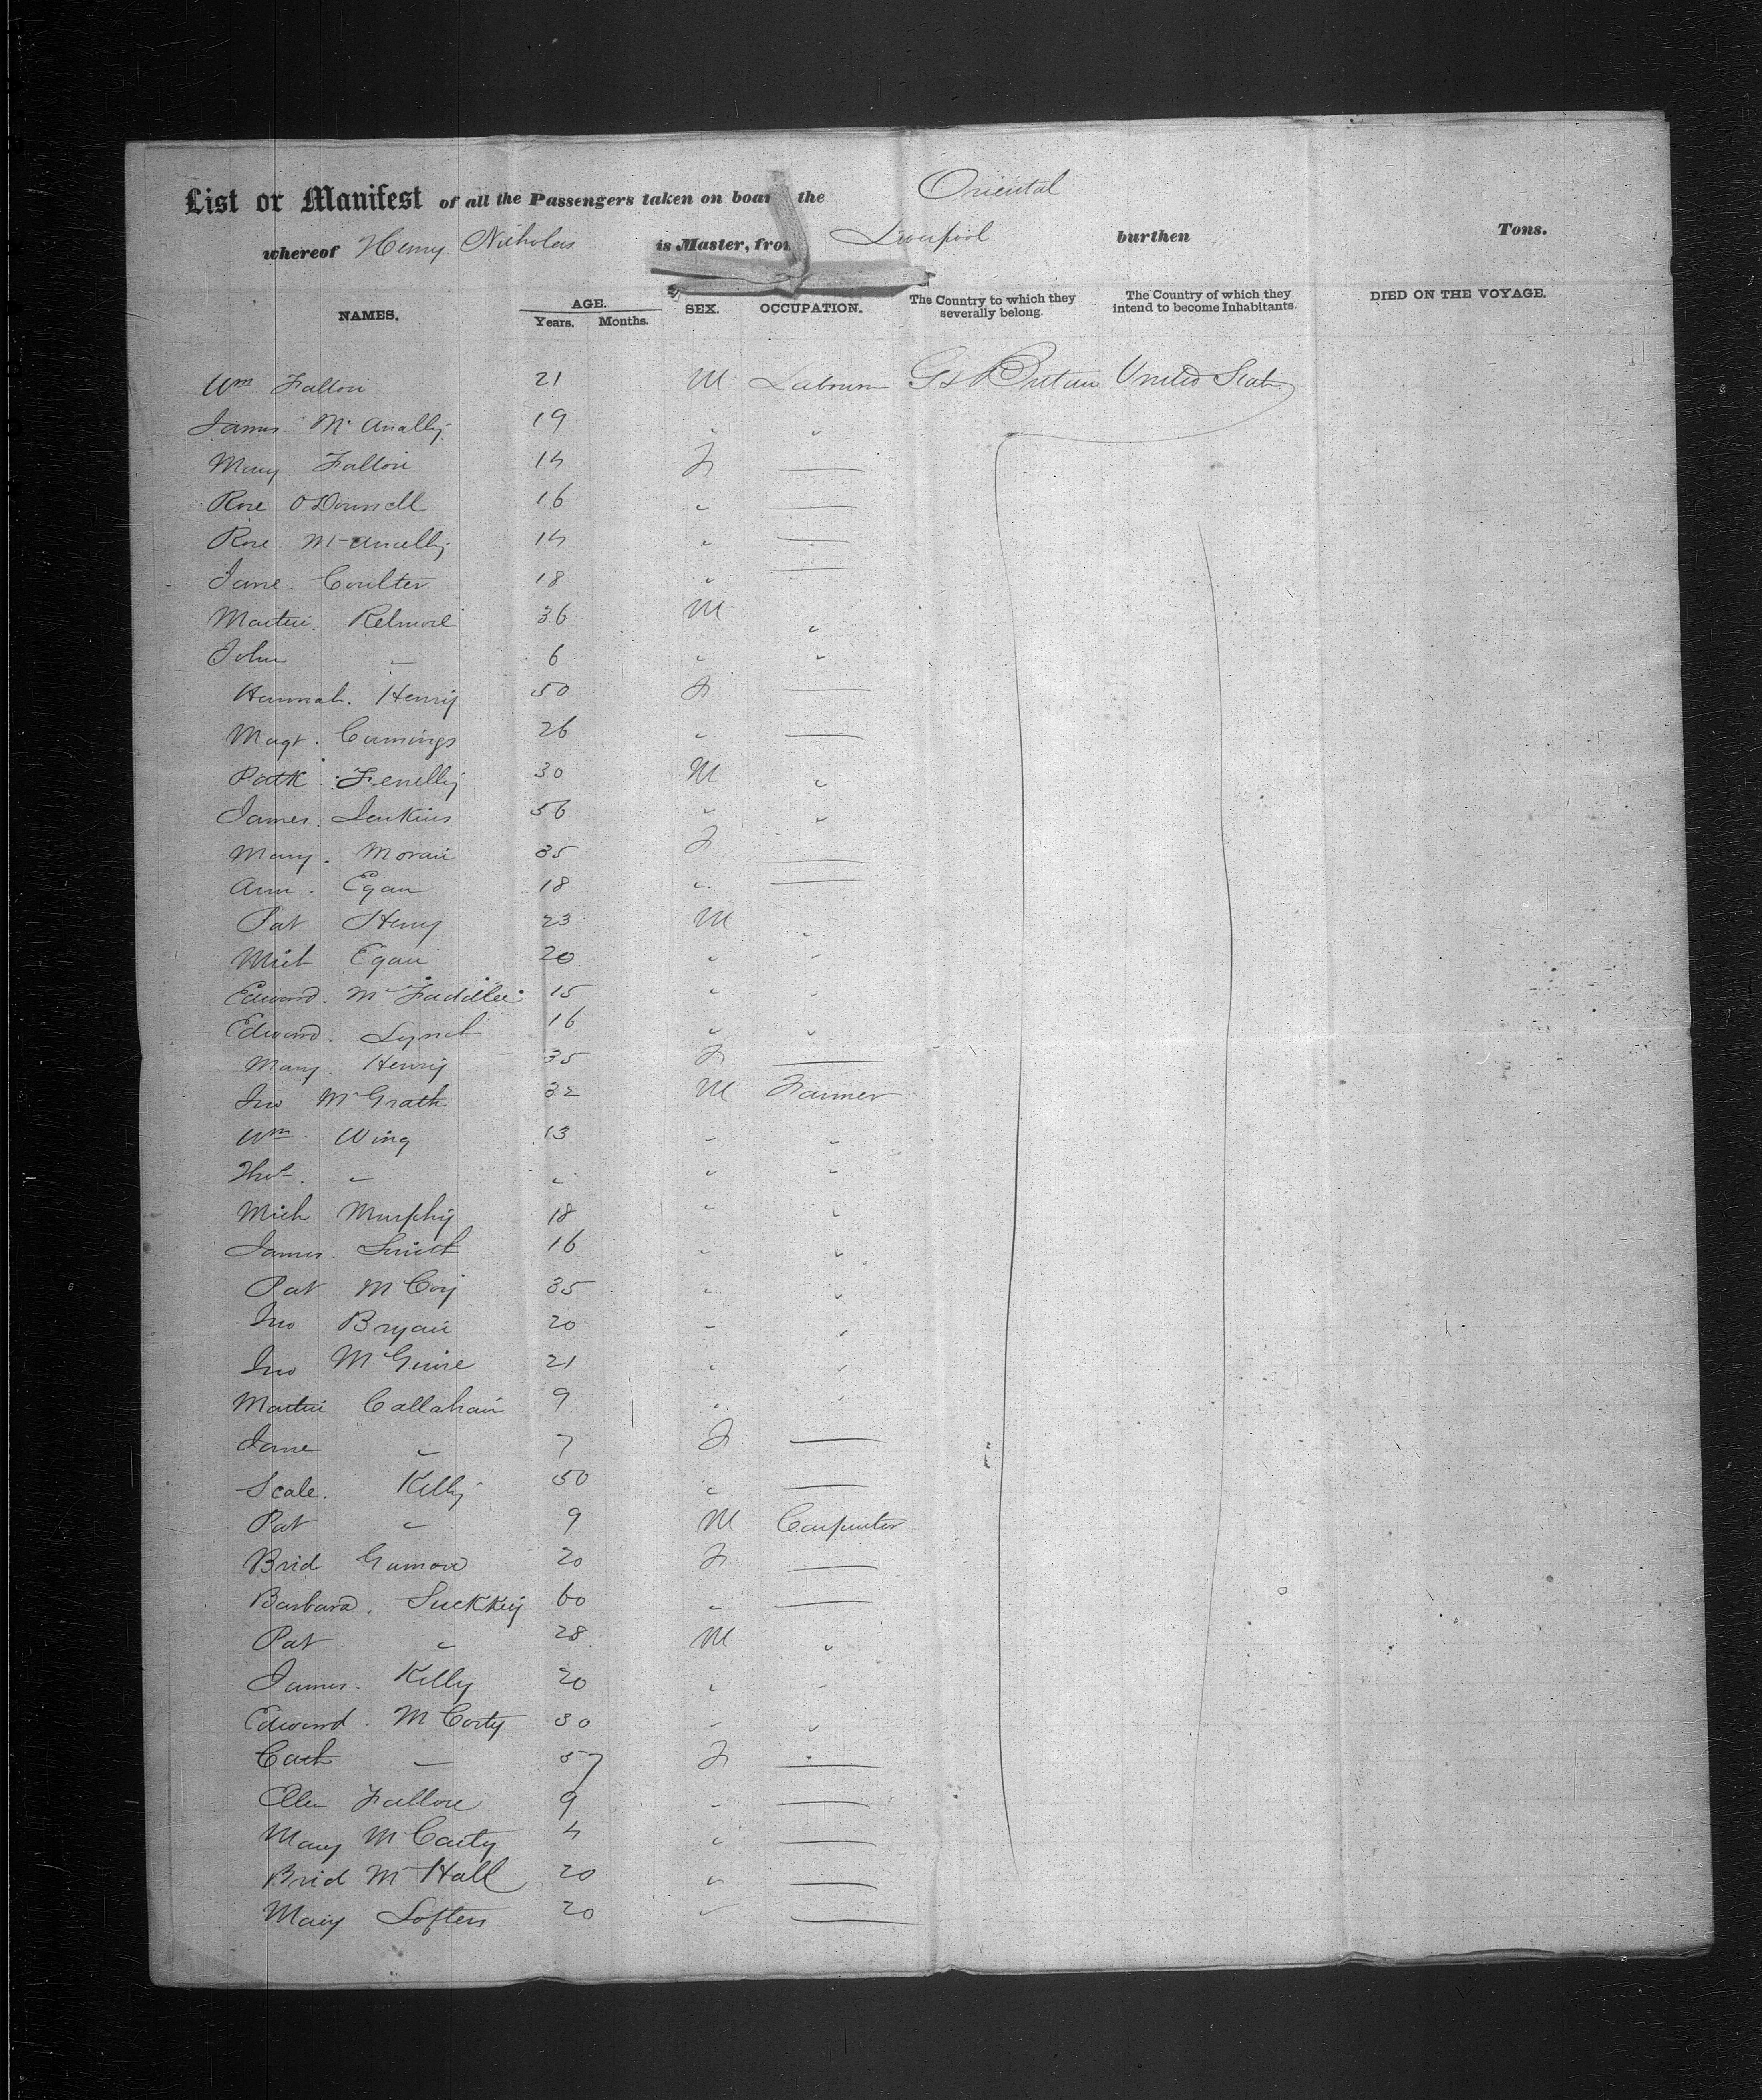 List or Manifest of all the Passengers taken on board the Oriental
whereof Henry Nicholas is Master, from Liverpool burthen Tons.
NAMES. AGE. Years. Months. SEX. OCCUPATION. The Country to which they severally belong. The Country of which they intend to become Inhabitants. DIED ON THE VOYAGE.
Wm Fallon 21 M Labourer Gt Britain United States
James McAnally 19 " "
Mary Fallon 14 F —
Rose O'Donnell 16 " —
Rose McAnally 14 " —
Jane Coulter 18 " —
Martin 36 M "
John " 6 " "
Hannah Henry 50 F —
Magt Cumings 26 " —
Patk Fenelly 30 M "
James Jenkins 56 " "
Mary Moran 35 F —
Ann Egan 18 " —
Pat Henry 23 M "
Mich Egan 20 " "
Edward McFadden 15 " "
Edward Lynch 16 " "
Mary Henry 35 F —
Jno McGrath 32 M Farmer
Wm Wing 13 " "
Thos " " " "
Mich Murphy 18 " "
James Smith 16 " "
Pat McCoy 35 " "
Jno Bryan 20 " "
Jno McGuire 21 " "
Martin Callahan 9 " "
Jane " 7 F —
Kelly 50 " —
Pat " 9 M Carpenter
Brid 20 F —
Barbara 60 " —
Pat " 28 M "
James Kelly 20 " "
Edward McCarty 30 " "
Cath " 57 F —
Ellen Fallon 9 " —
Mary McCarty 4 " —
Brid McHall 20 " —
Mary Loftus 20 " —